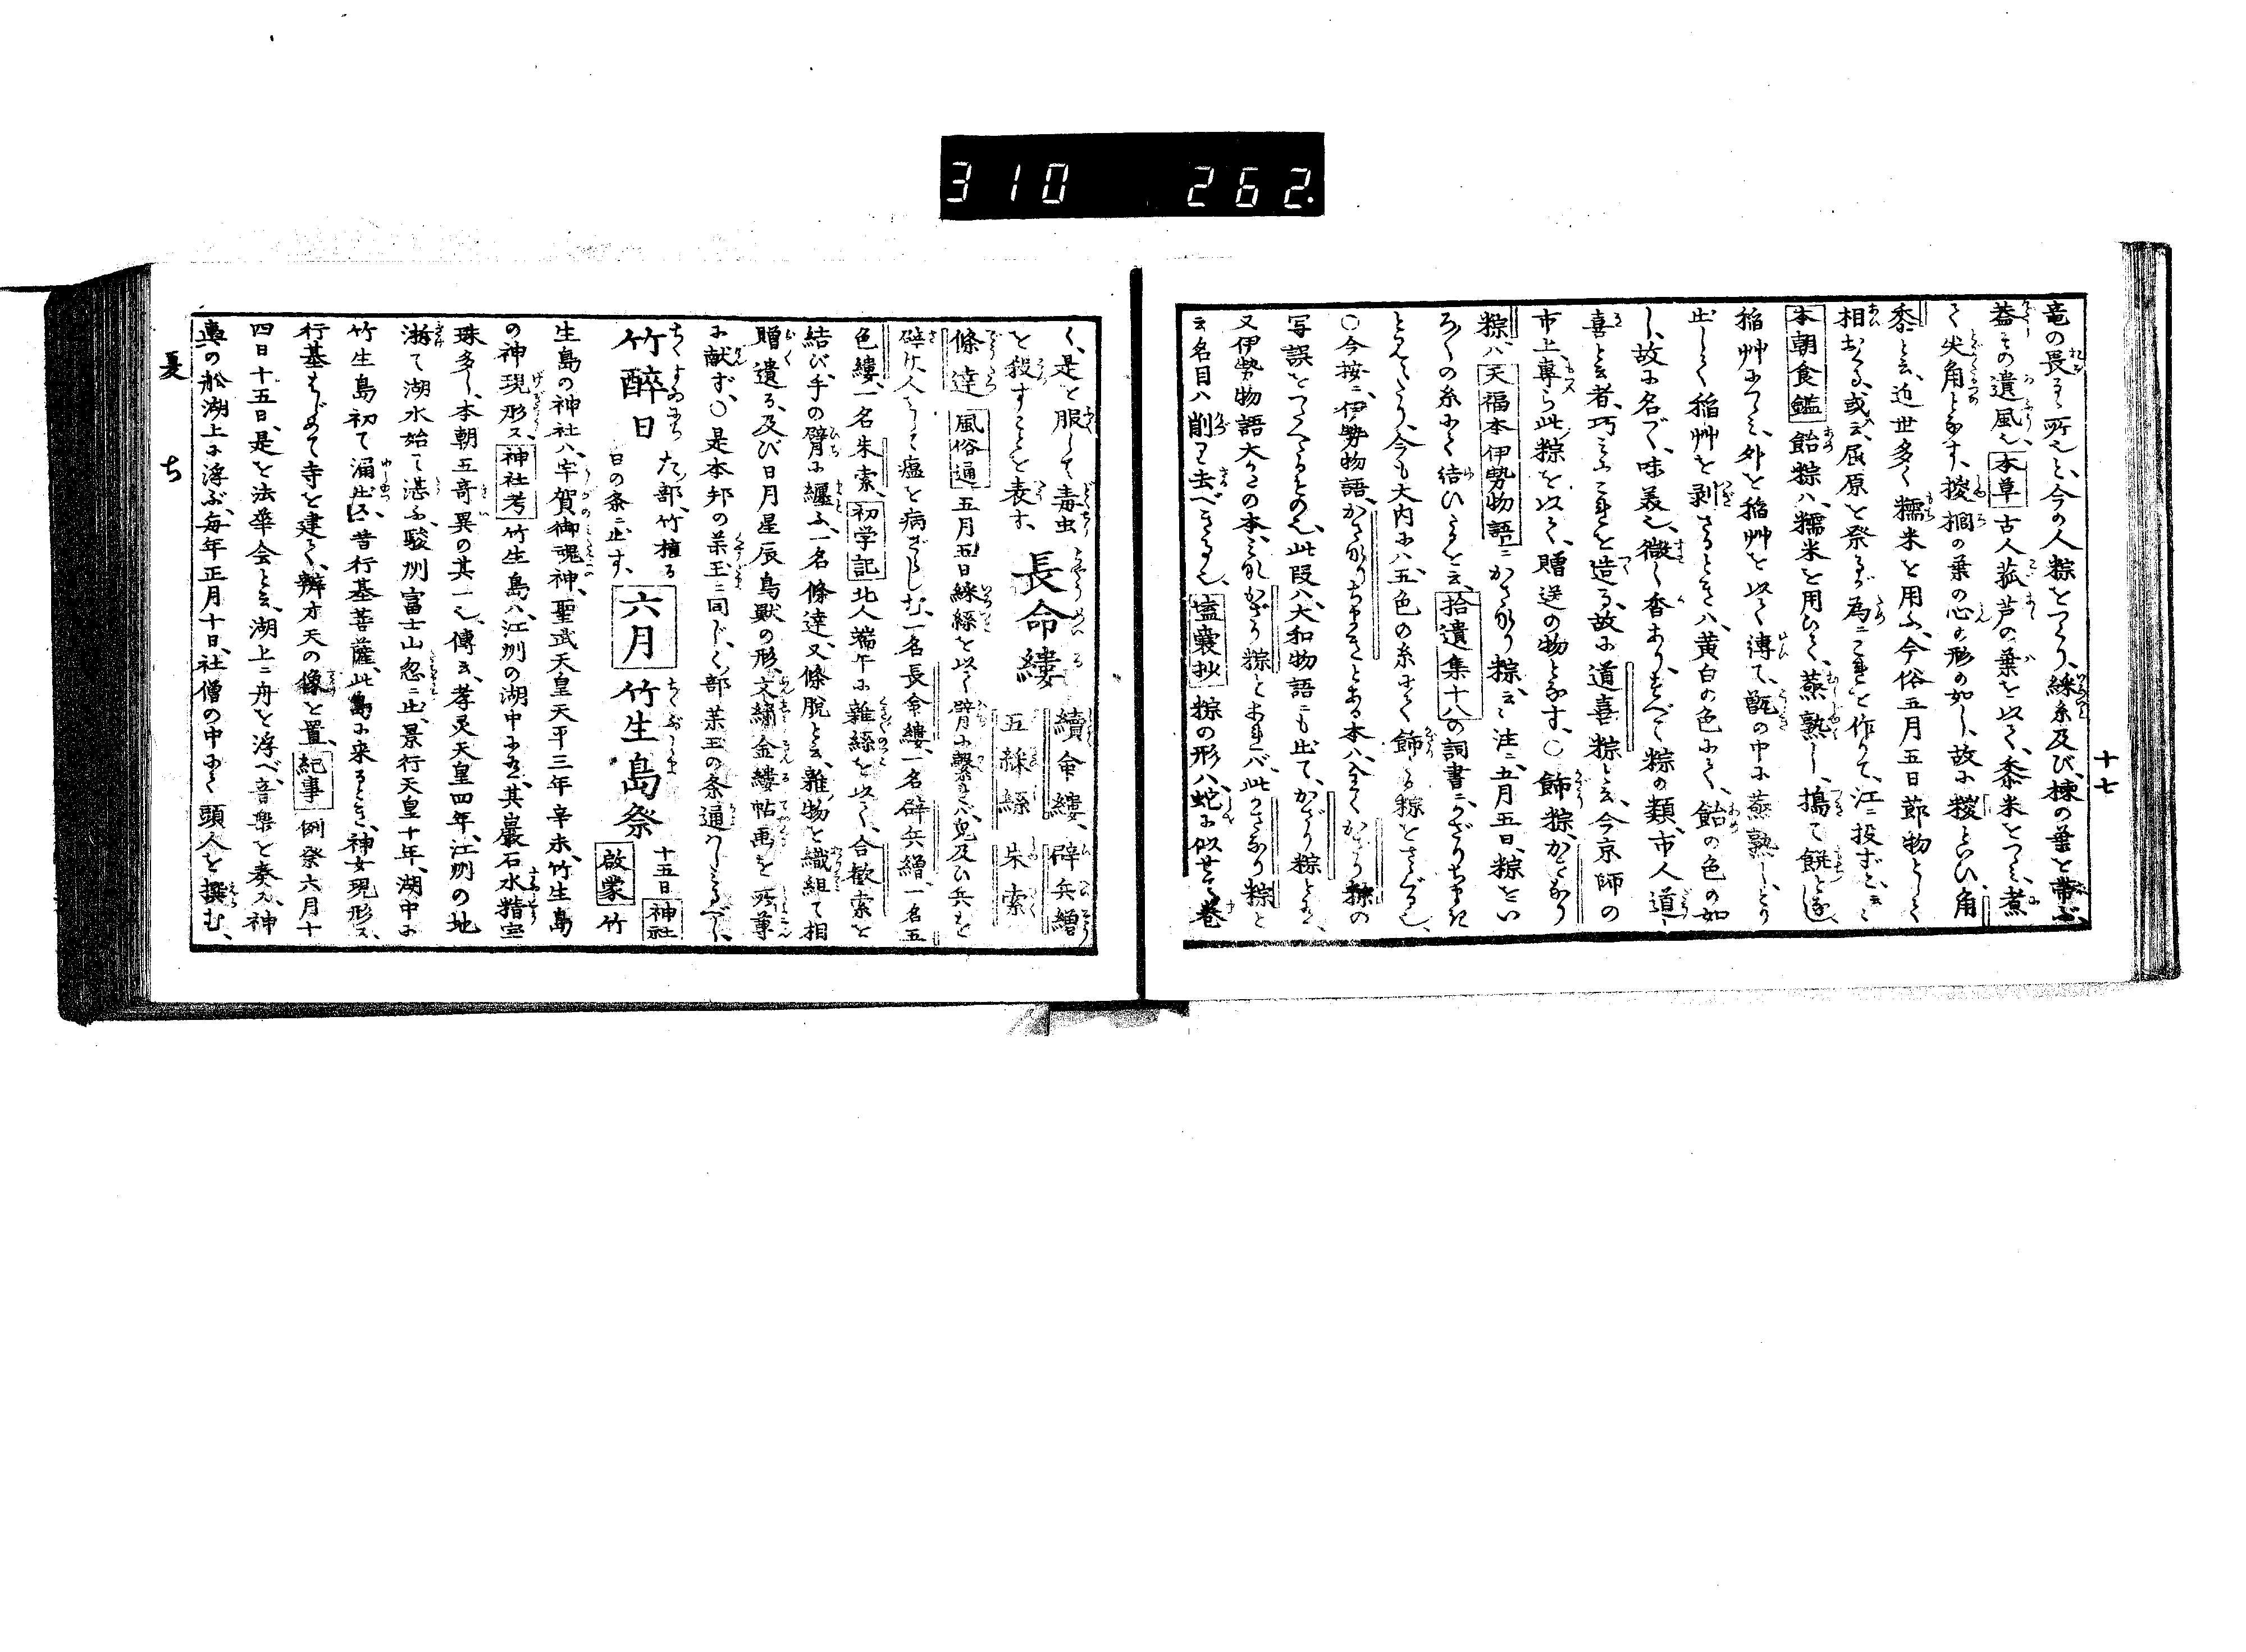 310 262.
十七
竜の畏るゝ所也と、今の人粽をつくり、綵糸及び、楝の葉を帯ぶ、
蓋その遺風也、本草古人菰芦の葉を以て、黍米をつゝみ、煮
て尖角となす、椶櫚の葉の心の形の如し、故に糉といひ、角
黍と云、近世多く糯米を用ふ、今俗五月五日節物として
相おくる、或云、屈原を祭るが為ニこれを作りて、江ニ投ずと、云々
本朝食鑑 飴粽ハ、糯米を用ひて、蒸熟し、搗て餅となし、
稲艸にてつゝみ、外を稲艸を以て縛て、甑の中に蒸熟し、とり
出して稲艸を剥さるときハ、黄白の色にて、飴の色の如
し、故に名づく、味美也、微く香あり、すべて粽の類、市人道
喜と云者、巧ミにこれを造る、故に道喜粽と云、今京師の
市上、専ら此粽を以て、贈送の物となす、○飾粽、かざり
粽ハ天福本伊勢物語ニかざり粽、云々注ニ、五月五日、粽をい
ろ〳〵の糸にて結ひたるを云、拾遺集十八の詞書ニかざりちまき
と見えたり、今も大内にハ、五色の糸にて飾る粽をさゝぐる也、
○今按ニ、伊勢物語、かざりちまきとある本ハ、全くかざり粽の
写誤をつたへたるもの也、此段ハ大和物語ニも出て、かざり粽とあり、
又伊勢物語大かたの本、ミなかざり粽とあれバ、此かさなり粽と
云名目ハ削り去べきなり也、壒嚢抄 粽の形ハ、蛇に似せて巻
く、是を服して毒虫
を殺すことを表す、長命縷 續命縷、辟兵繒
五綵絲 朱索
條達 風俗通 五月五日綵絲を以て臂に繋れバ、鬼及ひ兵を
辟け、人をして瘟を病ざらしむ、一名長命縷、一名辟兵繒、一名五
色縷、一名朱索、初学記 北人端午に雑絲を以て、合歓索を
結び、手の臂に纏ふ、一名條達、又條脱と云、雑物を織組て相
贈遺る、及び日月星辰鳥獣の形、文繍金縷帖画を所尊
に献ず、○是本邦の薬玉ニ同じ、く部薬玉の条通ハしミるべし、
竹酔日 た部、竹植る
日の条ニ出す、六月 竹生島祭 十五日神社
啓蒙 竹
生島の神社ハ、宇賀御魂神、聖武天皇天平三年辛未、竹生島
の神現形ス、神社考 竹生島ハ、江州の湖中にあり、其巌石水精宝
珠多し、本朝五奇異の其一也、傳云、孝灵天皇四年、江州の地
漸て湖水始て湛ふ、駿州富士山忽ニ出、景行天皇十年、湖中に
竹生島初て涌出ス、昔行基菩薩、此島に来るとき、神女現形ス、
行基はじめて寺を建て、辨才天の像を置、紀事 例祭六月十
四日十五日、是を法華会と云、湖上ニ舟を浮べ、音楽を奏ス、神
輿の舩湖上に浮ぶ、毎年正月十日、社僧の中にて頭人を撰む、
夏 ち